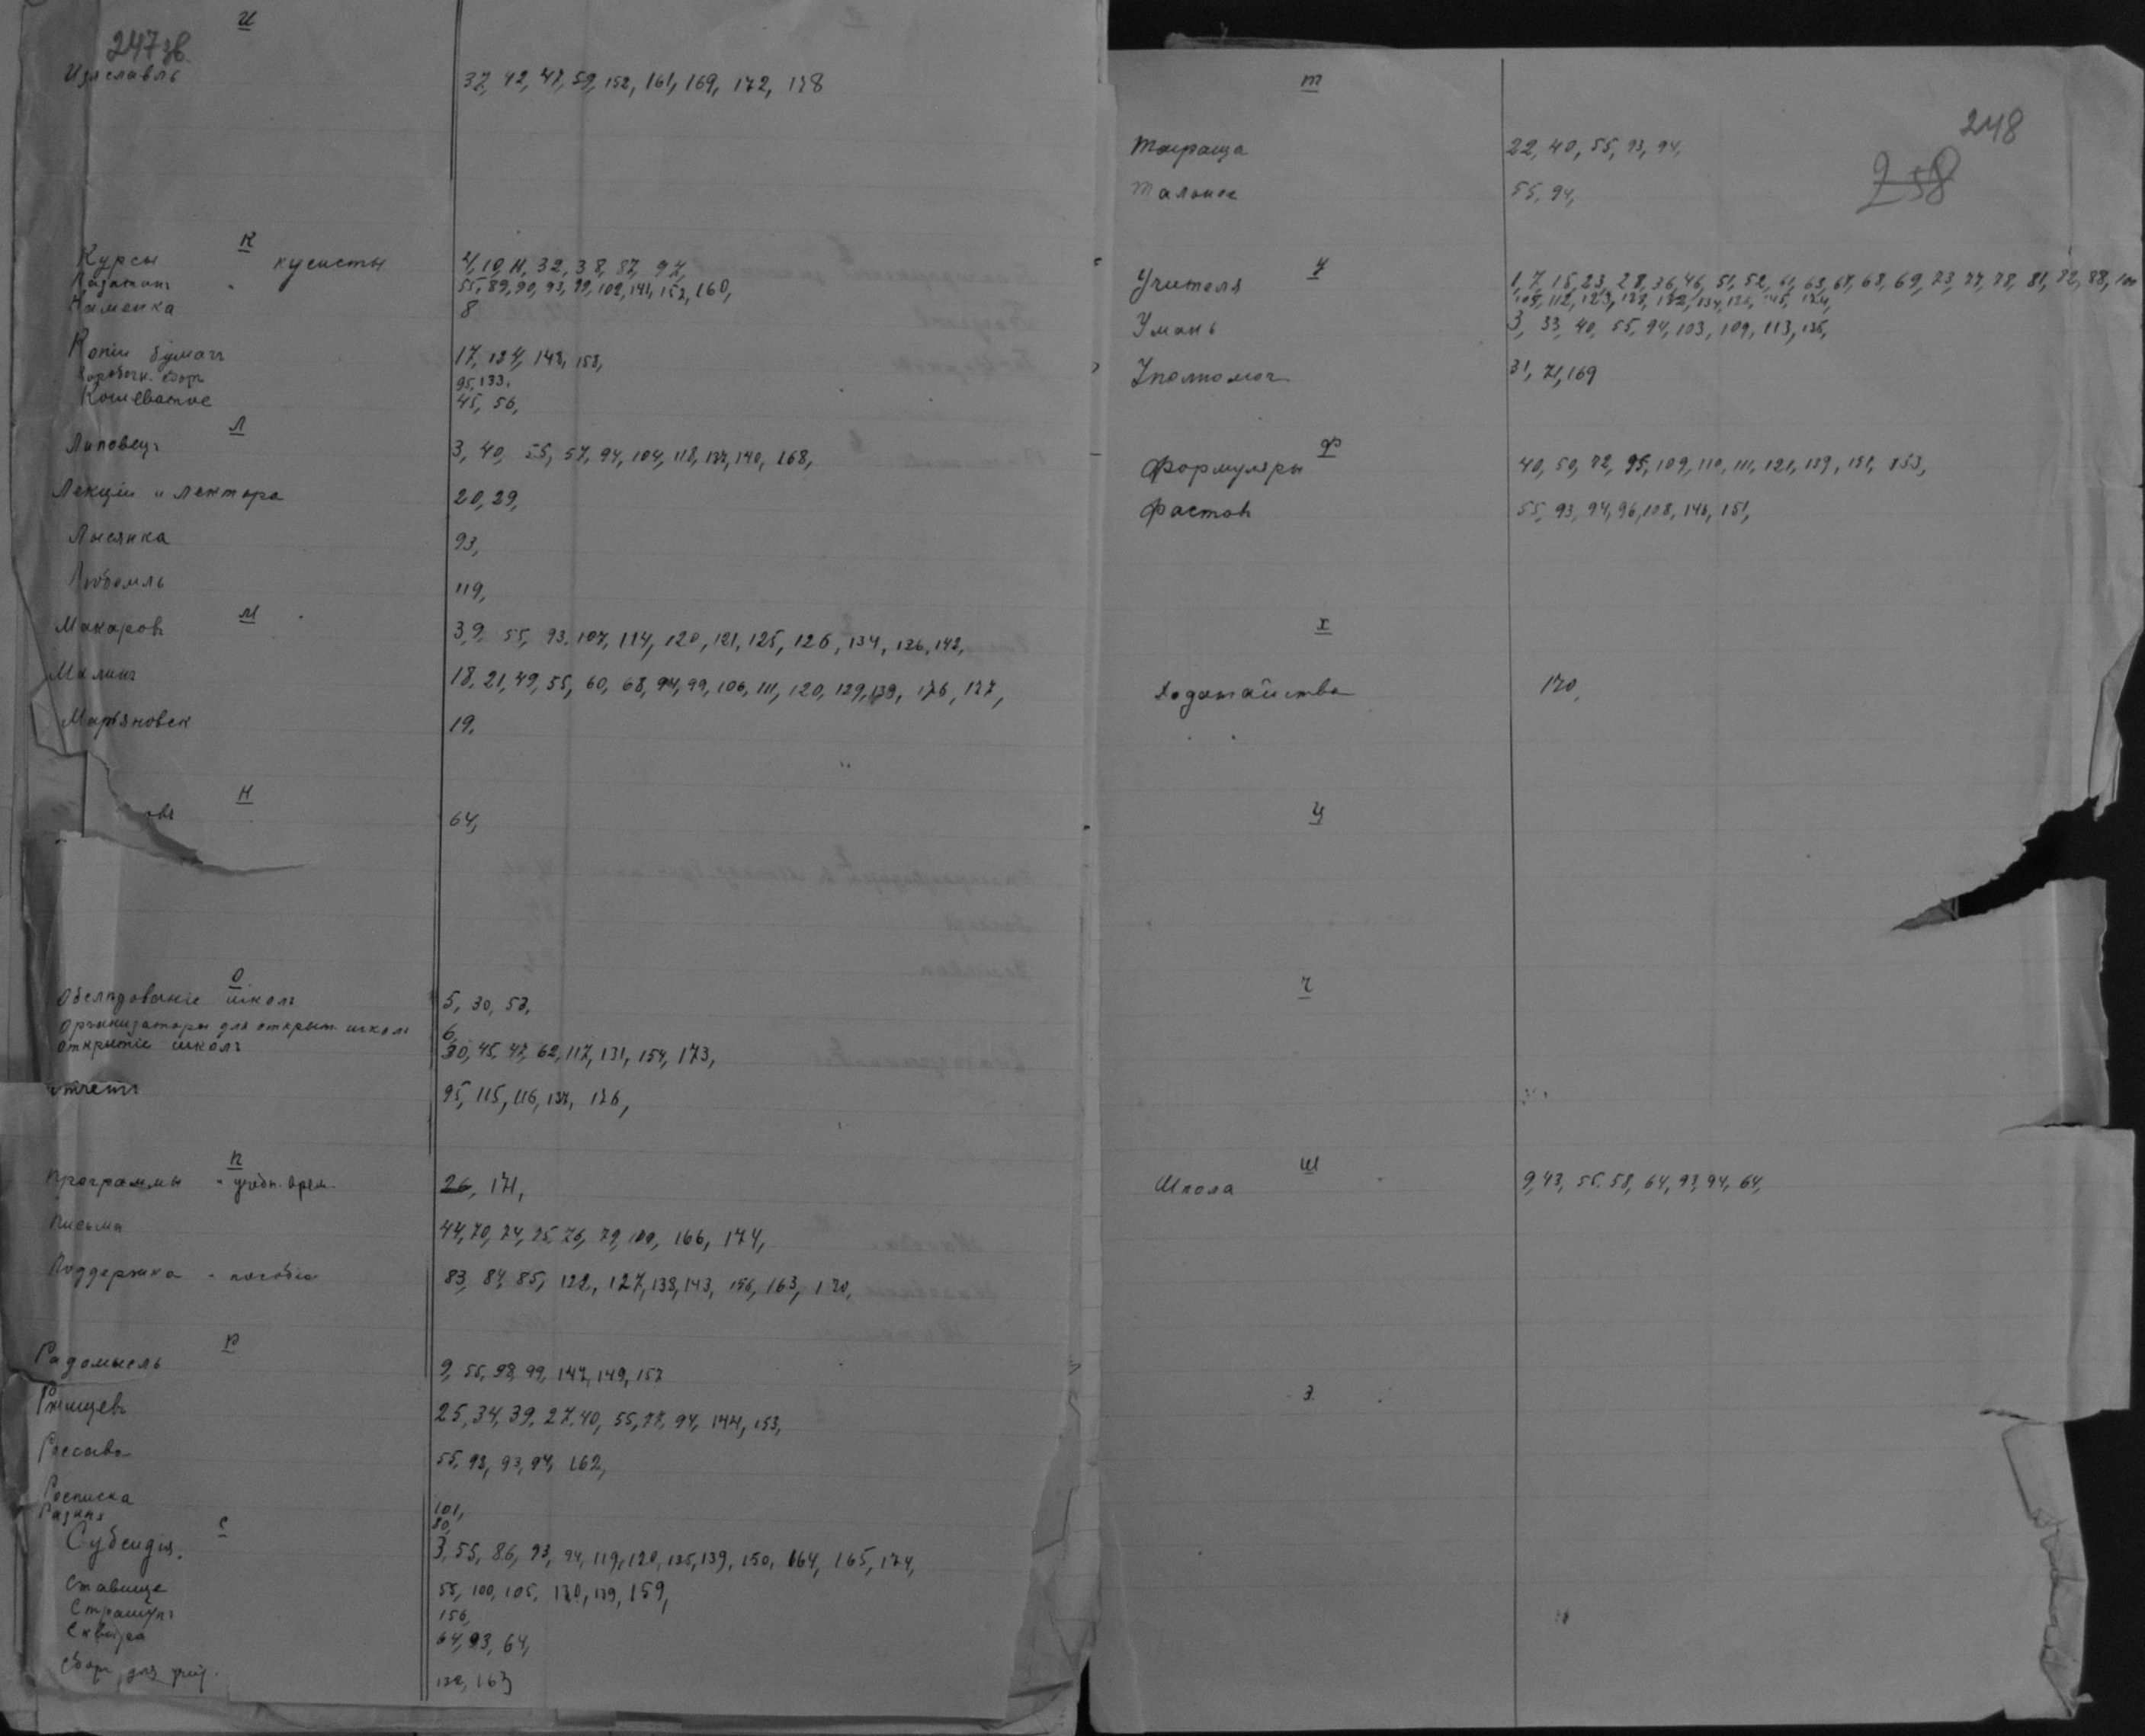 И
247 зв.
Изяславль 37, 42, 47, 59, 152, 161, 169, 172, 178
К
Курсы кусисты 4, 10, 11, 32, 38, 87, 97,
Казатинъ 55, 89, 90, 93, 99, 102, 141, 152, 160,
Каменка 8
Копіи бумагъ 17, 124, 148, 158,
Коробочн. сборъ 95, 133,
Кошеватое 45, 56,
Л
Липовецъ 3, 40, 55, 57, 94, 104, 118, 137, 140, 168,
Лекціи и лектора 20, 29,
Лысянка 93,
Любомль 119,
М
Макаровъ 3, 9, 55, 93, 107, 114, 120, 121, 125, 126, 134, 136, 142,
Малинъ 18, 21, 49, 55, 60, 68, 94, 99, 106, 111, 120, 129, 139, 176, 177,
Марьяновск 19,
Н
овъ 64,
О
Обслѣдованіе школъ 5, 30, 53,
Организаторы для открыт. школъ 6,
Открытіе школъ 30, 45, 47, 62, 117, 131, 154, 173,
Отчетъ 95, 115, 116, 137, 176,
П
Программы учебн. врем. 26, 171,
Письма 44, 70, 74, 75, 76, 79, 100, 166, 174,
Поддержка пособіе 83, 84, 85, 122, 127, 138, 143, 156, 163, 170,
Р
Радомысль 9, 55, 98, 99, 147, 149, 157
Ржищевъ 25, 34, 39, 27, 40, 55, 77, 94, 144, 153,
Россава 55, 93, 93, 94, 162,
Росписка 101,
Разныя 80,
С
Субсидія. 3, 55, 86, 93, 94, 119, 120, 135, 139, 150, 164, 165, 174,
Ставище 55, 100, 105, 120, 139, 159,
Страшунъ 156,
Сквыра 64, 93, 64,
Сборъ для учит. 132, 163
Т
248
258
Тараща 22, 40, 55, 93, 94,
Тальное 55, 94,
У
Учителя 1, 7, 15, 23, 28, 36, 46, 51, 52, 61, 63, 67, 68, 69, 73, 77, 78, 81, 82, 88, 100
105, 112, 123, 128, 132, 134, 136, 145, 174,
Умань 3, 33, 40, 55, 94, 103, 109, 113, 135,
Уполномоч. 31, 71, 169
Ф
Формуляры 40, 50, 72, 95, 109, 110, 111, 121, 139, 151, 153,
Фастовъ 55, 93, 94, 96, 108, 146, 151,
Х
Ходатайства 170,
Ц
Ч
Ш
Школа 9, 43, 55, 58, 64, 93, 94, 64,
Э